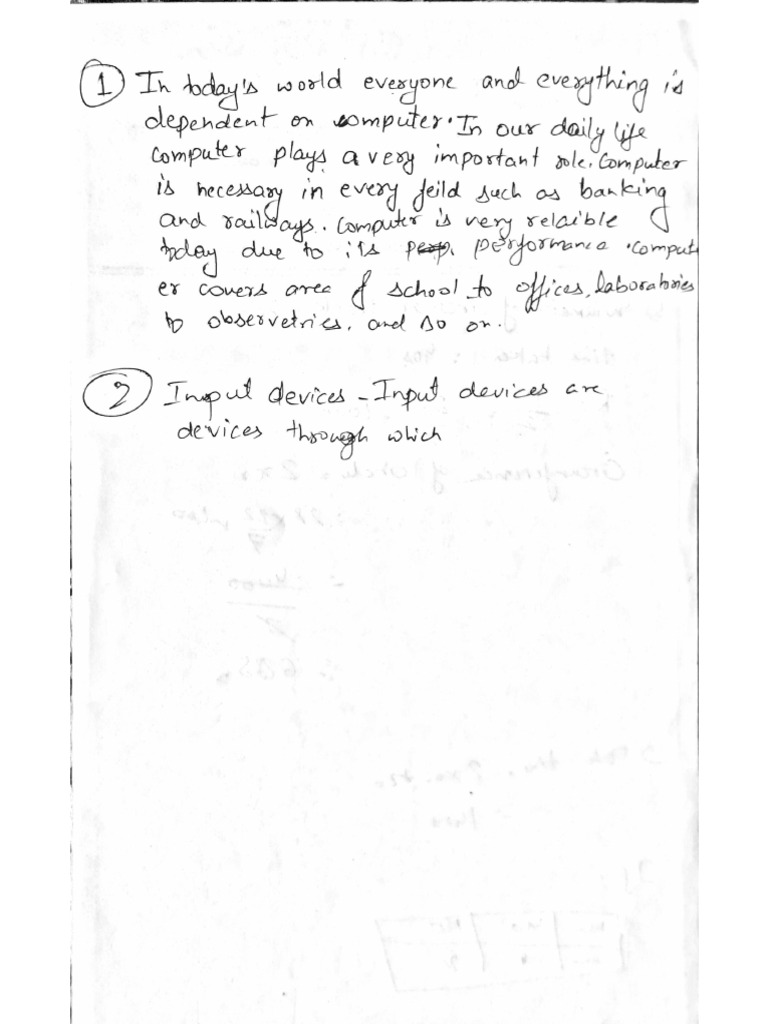 1 In today's world everyone and everything is
dependent on computer. In our daily life
computer plays a very important role. Computer
is necessary in every feild such as banking
and railways. Computer is very relaible
today due to its performance. Comput
er covers area of school to offices, laboratories
to observetries, and so on.
2 Input devices - Input devices are
devices through which